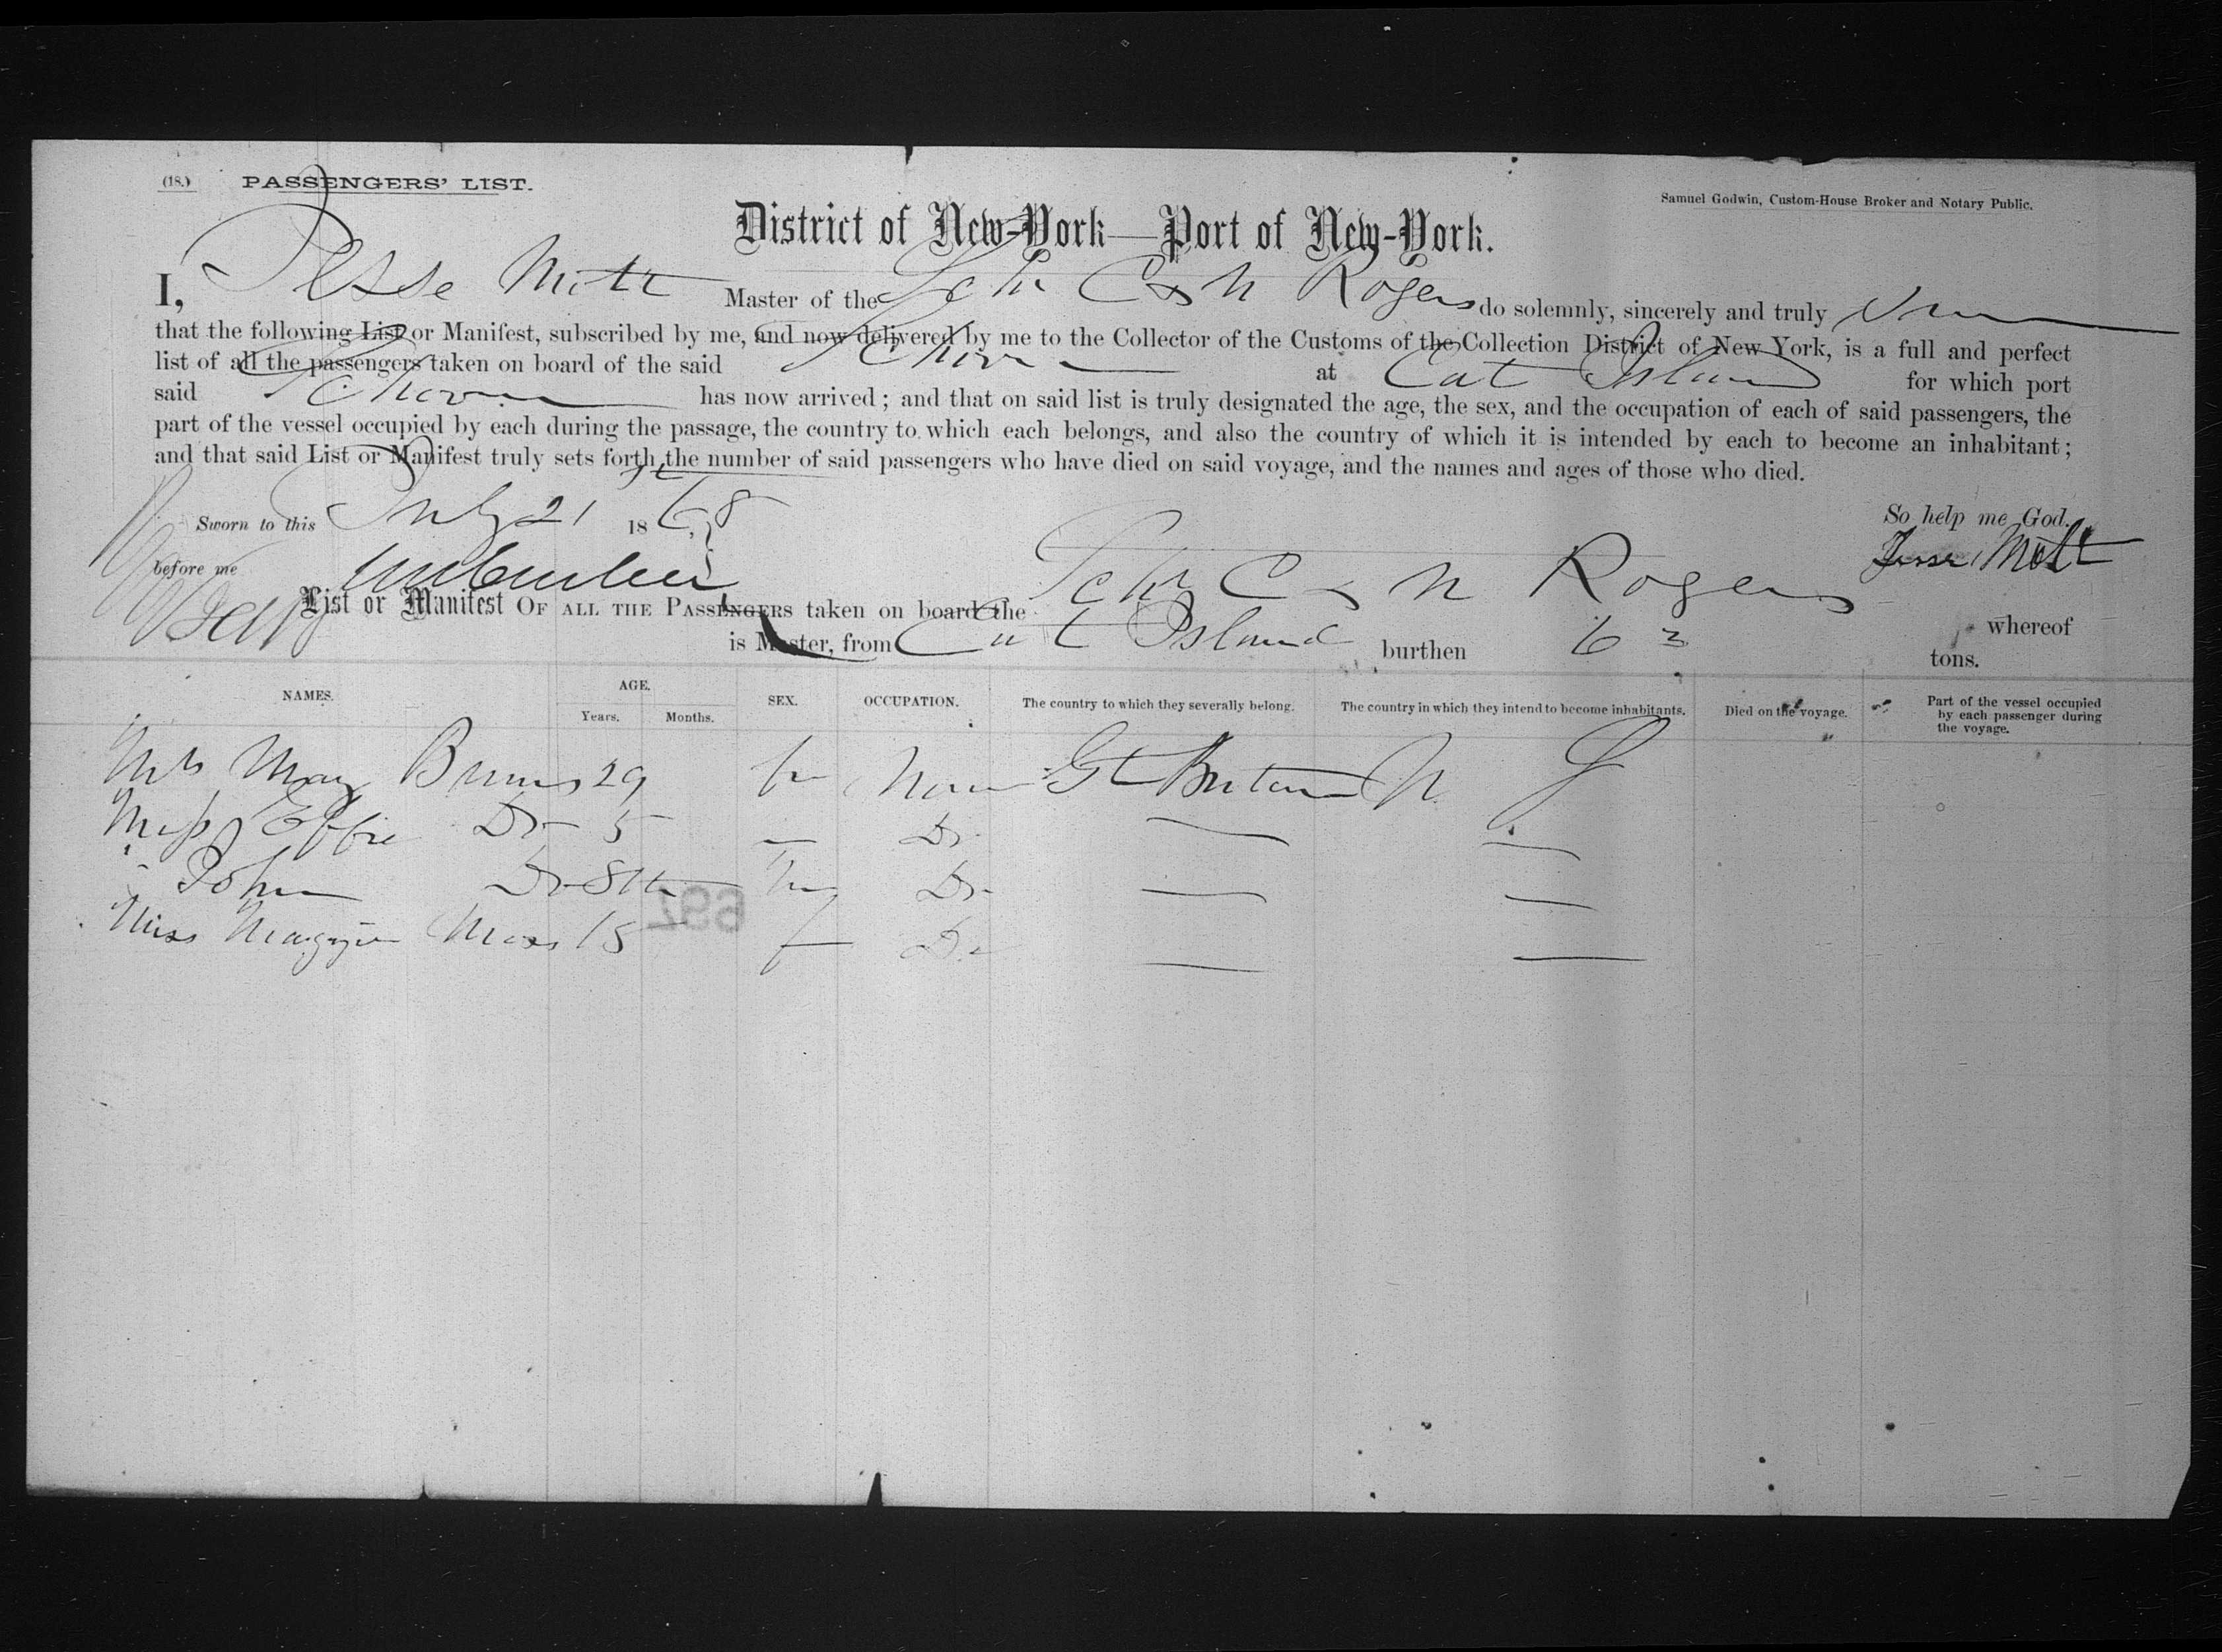 (18.) PASSENGERS' LIST.
Samuel Godwin, Custom-House Broker and Notary Public.
District of New-York—Port of New-York.
I, Jesse Mott Master of the Schr C & N Rogers do solemnly, sincerely and truly
that the following List or Manifest, subscribed by me, and now delivered by me to the Collector of the Customs of the Collection District of New York, is a full and perfect
list of all the passengers taken on board of the said Schooner at Cat Island for which port
said Schooner has now arrived; and that on said list is truly designated the age, the sex, and the occupation of each of said passengers, the
part of the vessel occupied by each during the passage, the country to which each belongs, and also the country of which it is intended by each to become an inhabitant;
and that said List or Manifest truly sets forth the number of said passengers who have died on said voyage, and the names and ages of those who died.
Sworn to this July 21 1868 So help me God.
before me Jesse Mott
List or Manifest OF ALL THE PASSENGERS taken on board the Schr C & N Rogers whereof
is Master, from Cat Island burthen 63 tons.
NAMES. AGE. Years. Months. SEX. OCCUPATION. The country to which they severally belong. The country in which they intend to become inhabitants. Died on the voyage. Part of the vessel occupied by each passenger during the voyage.
Mrs Mary Burns 29 f None Gt Britain N.
Miss Effie Do 5 — Do — —
" John Do 8 m Do — —
Miss Maggie Moss 15 f Do — —
692